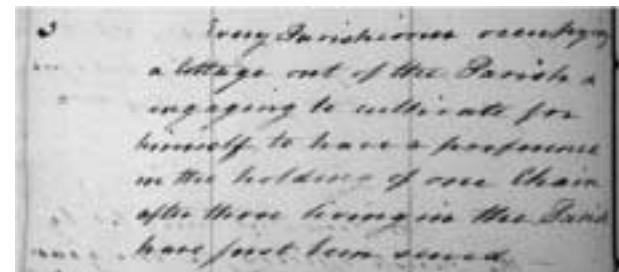 3 Every Parishioner occupying
a Cottage out of the Parish &
engaging to cultivate for
himself to have a preference
in the holding of one Chain
after those living in the Parish
have first been served